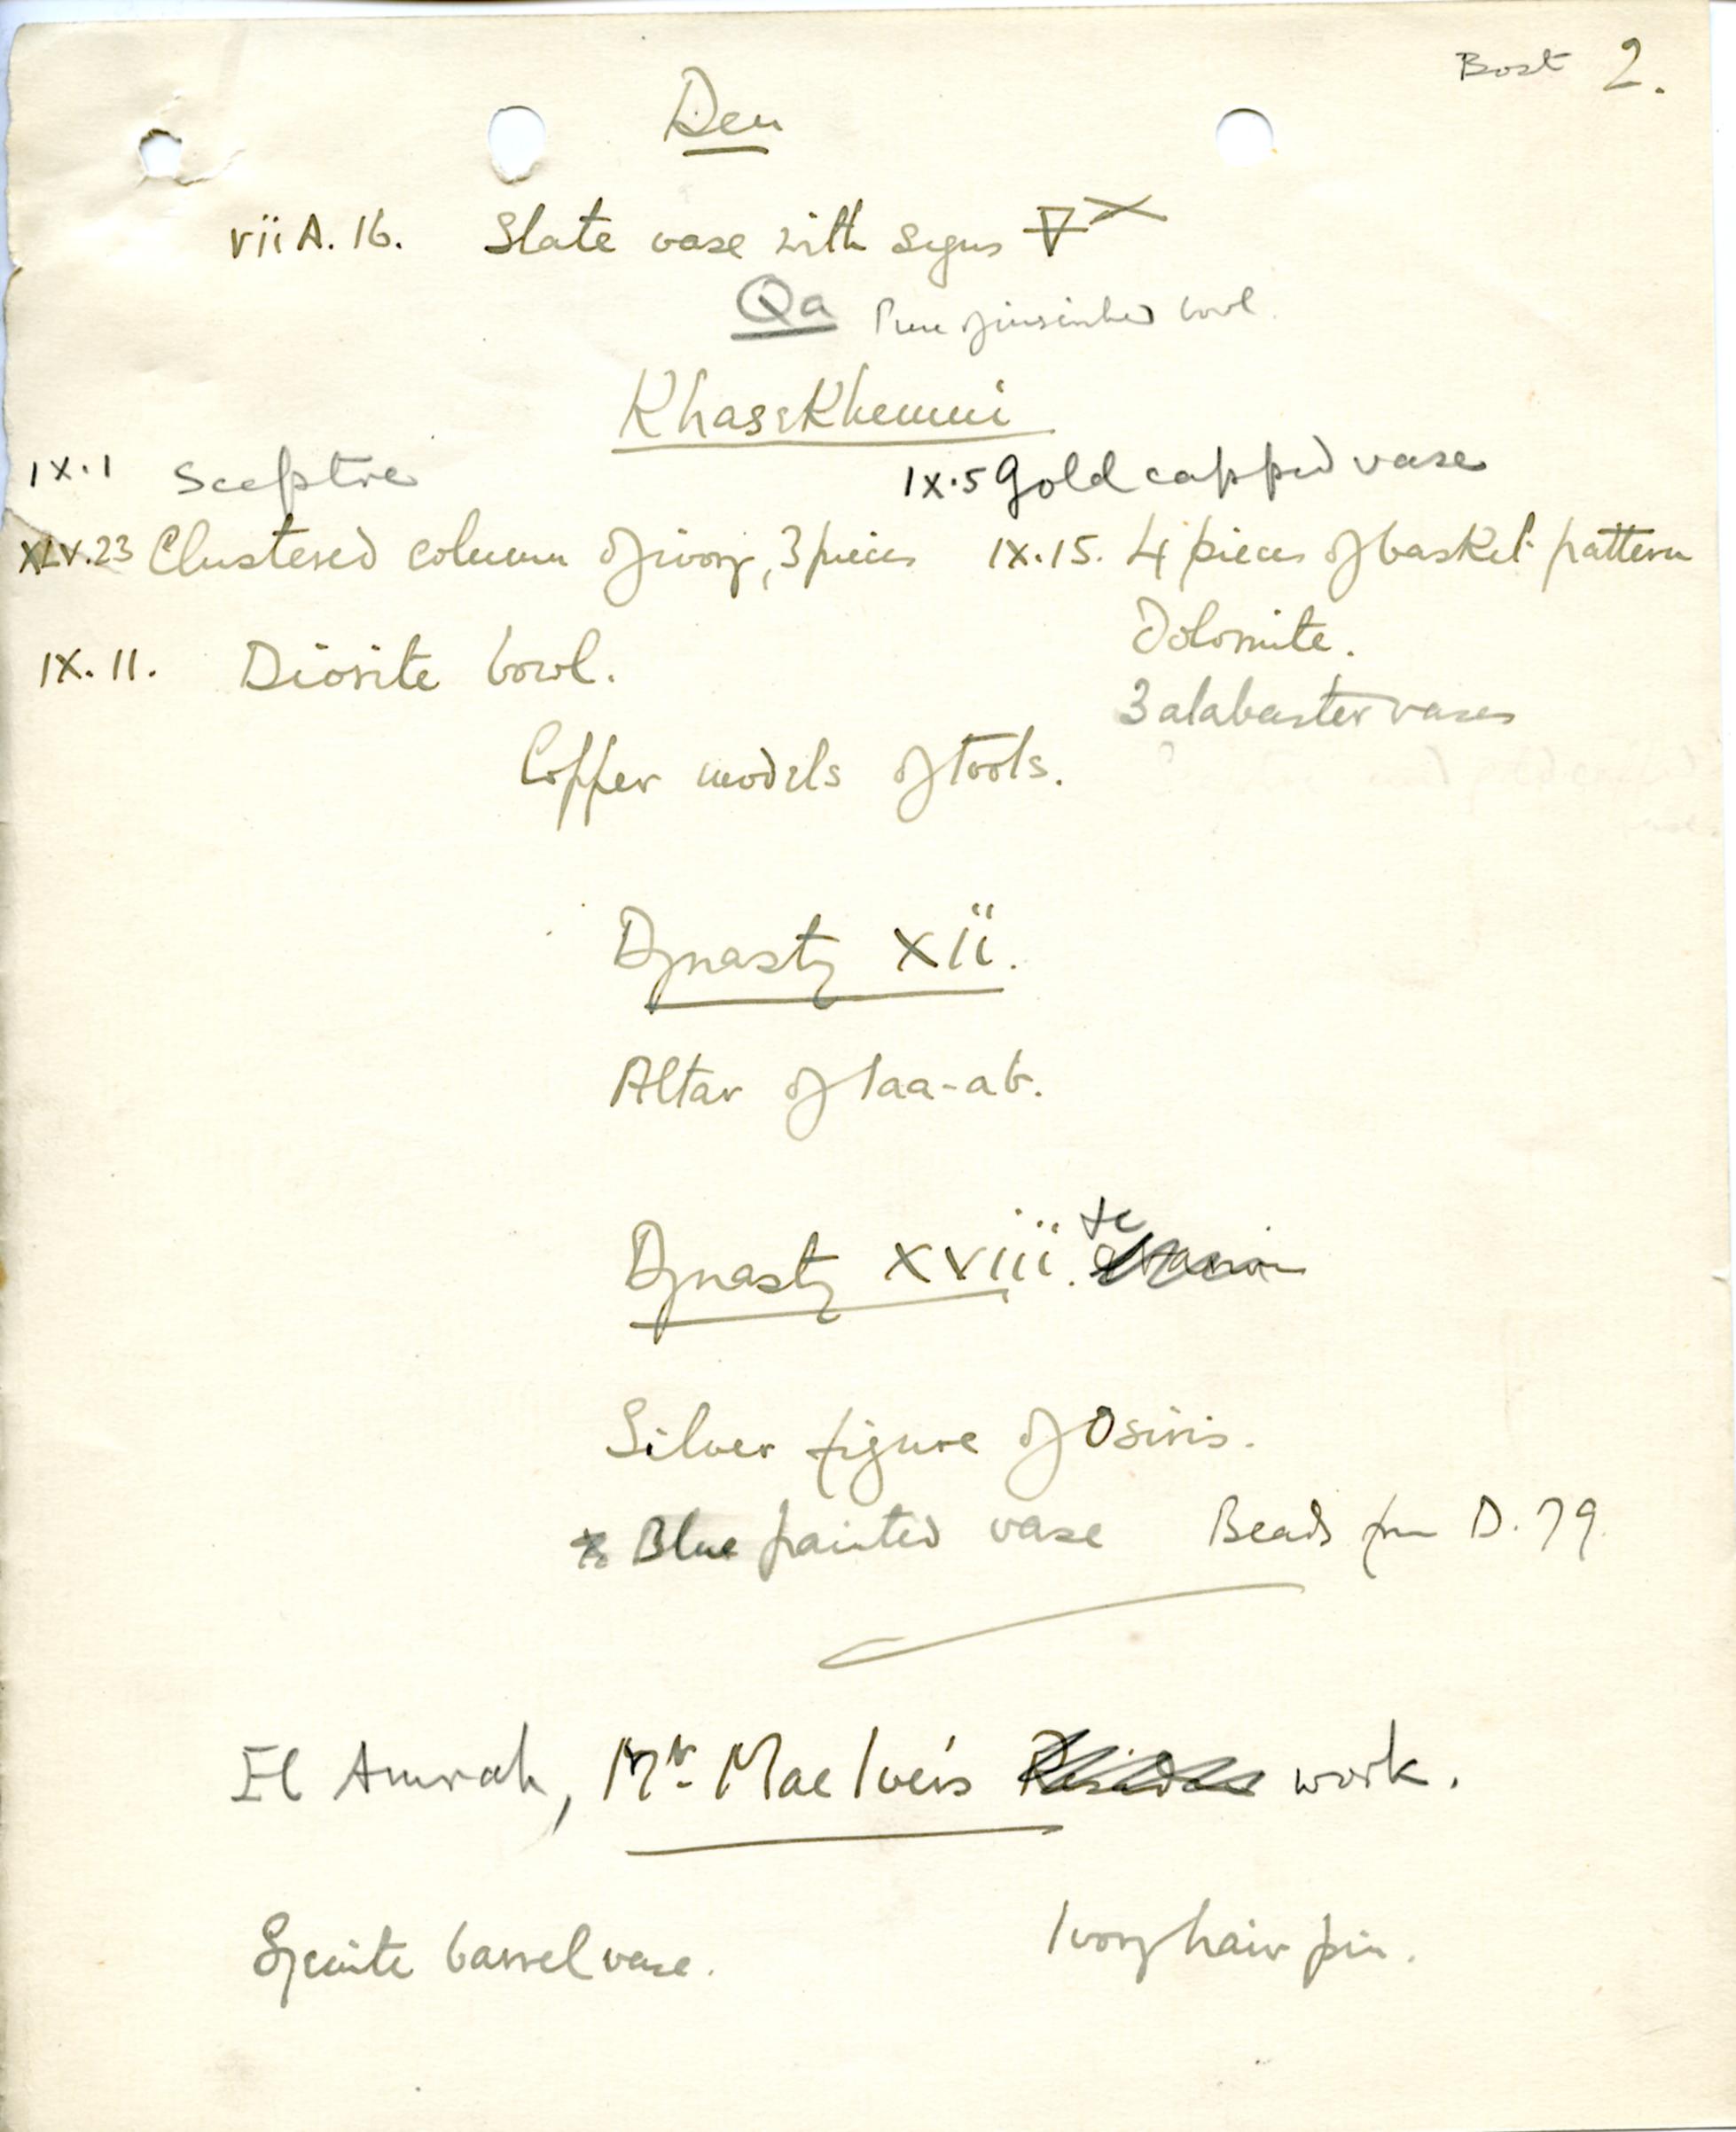 Bost 2.
Den
vii A. 16. Slate vase with signs
Qa Piece of inscribed bowl.
Khasekhemui
IX.1 Sceptre IX.5 Gold capped vase
XLV.23 Clustered column of ivory, 3 pieces IX.15. 4 pieces of basket pattern
Dolomite.
IX.11. Diorite bowl.
3 alabaster vases
Copper models of tools.
Dynasty Xii.
Altar of Iaa-ab.
Dynasty XViii. &c
Silver figure of Osiris.
Blue painted vase Beads fm D.79.
El Amrah, Mr. MacIver's work.
Syenite barrel vase. Ivory hair pin.